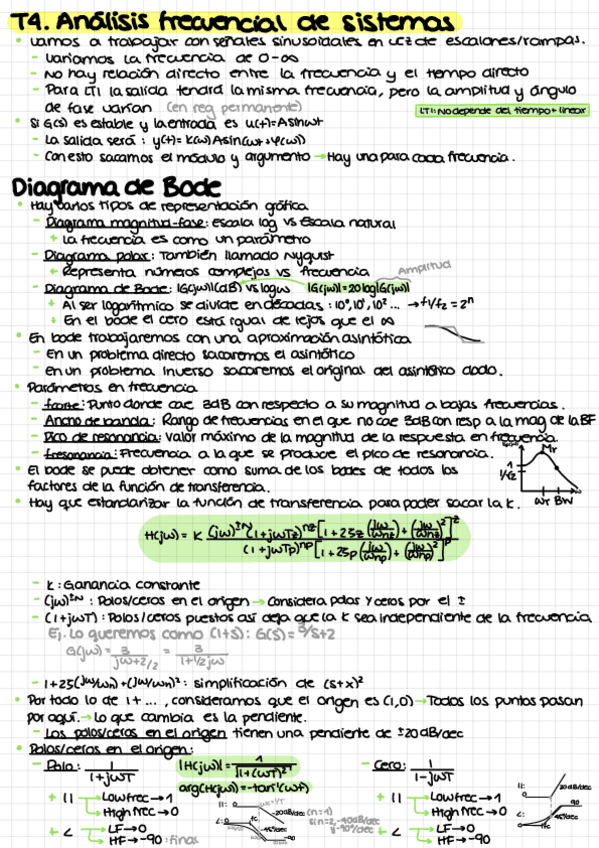 T4. Análisis frecuencial de sistemas
• Vamos a trabajar con señales sinusoidales en vez de escalones/rampas.
- Variamos la frecuencia de 0-∞
- No hay relación directo entre la frecuencia y el tiempo directo
- Para LTI la salida tendrá la misma frecuencia, pero la amplitud y ángulo
de fase varían (en reg permanente)
LTI: No depende del tiempo + linear
• Si G(s) es estable y la entrada es u(t)=Asinωt
- La salida será: y(t)= k(ω)Asin(ωt+φ(ω))
- Con esto sacamos el módulo y argumento → Hay una para cada frecuencia.
Diagrama de Bode
• Hay varios tipos de representación gráfica
- Diagrama magnitud-fase: Escala log vs Escala natural
+ La frecuencia es como un parámetro
- Diagrama polar: También llamado Nyquist
+ Representa números complejos vs frecuencia
Amplitud
- Diagrama de Bode: |G(jω)|(dB) vs logω |G(jω)|=20log|G(jω)|
+ Al ser logarítmico se divide en décadas: 10⁰, 10¹, 10² ... → f1/f2 = 2ⁿ
+ En el bode el cero está igual de lejos que el ∞
• En bode trabajaremos con una aproximación asintótica
- En un problema directo sacaremos el asintótico
- En un problema inverso sacaremos el original del asintótico dado.
• Parámetros en frecuencia
- fcorte: Punto donde cae 3dB con respecto a su magnitud a bajas frecuencias.
- Ancho de banda: Rango de frecuencias en el que no cae 3dB con resp a la mag de la BF
- Pico de resonancia: Valor máximo de la magnitud de la respuesta en frecuencia.
- fresonancia: Frecuencia a la que se produce el pico de resonancia.
Mr
1
1/√2
ωr BW
• El bode se puede obtener como suma de los bodes de todos los
factores de la función de transferencia.
• Hay que estandarizar la función de transferencia para poder sacar la k.
H(jω) = K (jω)^±N (1+jωTz)^nz [1+2ζz(jω/ωnz)+(jω/ωnz)²]^z / (1+jωTp)^np [1+2ζp(jω/ωnp)+(jω/ωnp)²]^p
- K: Ganancia constante
- (jω)^±N: Polos/ceros en el origen → Considera polos y ceros por el ±
- (1+jωT): Polos/ceros puestos así deja que la K sea independiente de la frecuencia
Ej. Lo queremos como (1+s): G(s) = 3/s+2
G(jω) = 3/jω+2/2 = 3/1+1/2jω
- 1+2ζ(jω/ωn)+(jω/ωn)²: simplificación de (s+x)²
• Por todo lo de 1+..., consideramos que el origen es (1,0) → Todos los puntos pasan
por aquí. → Lo que cambia es la pendiente.
- Los polos/ceros en el origen tienen una pendiente de ±20dB/dec
• Polos/ceros en el origen:
- Polo: 1/1+jωT |H(jω)| = 1/√1+(ωT)² - Cero: 1/1-jωT
arg(H(jω)) = -tan⁻¹(ωT)
+ || Low frec → 1
High frec → 0
+ ∠ LF → 0
HF → -90 : final
||: 0 ω=1/T -20dB/dec (n=1)
∠: 0 fc -45º/dec
+ || Low frec → 1
High frec → 0
+ ∠ LF → 0
HF → -90
||: 0 20dB/dec
∠: 0 fc 90 45º/dec